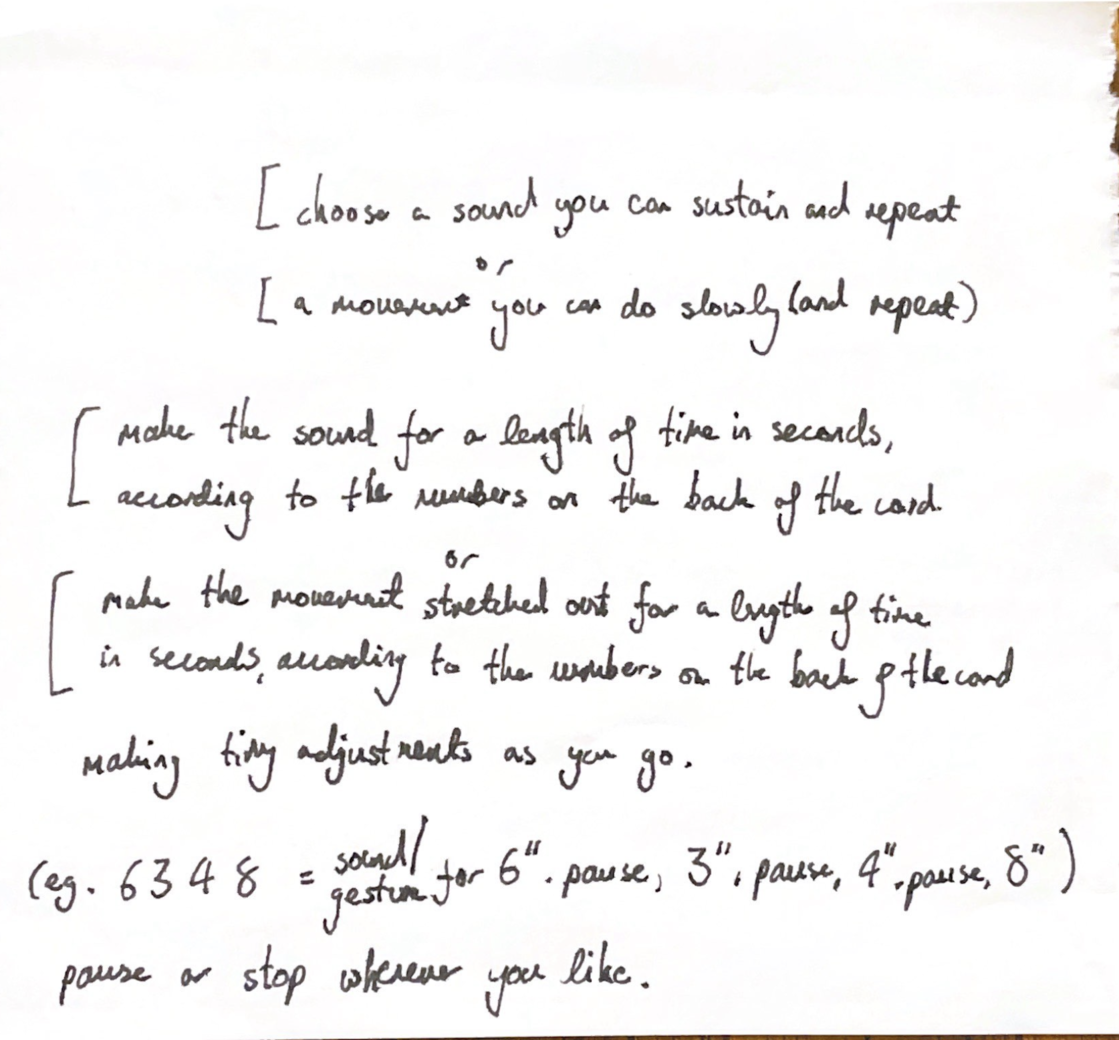 [ choose a sound you can sustain and repeat
or
[ a movement you can do slowly (and repeat)
[ make the sound for a length of time in seconds,
according to the numbers on the back of the card.
or
[ make the movement stretched out for a length of time
in seconds, according to the numbers on the back of the card
making tiny adjustments as you go.
(eg. 6 3 4 8 = sound/
gesture for 6". pause, 3", pause, 4", pause, 8")
pause or stop whenever you like.